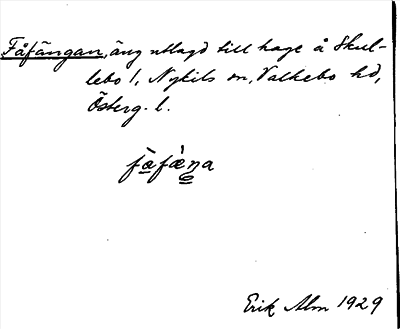 Fåfängan, äng utlagd till hage å Skul-
lebo 1, Nykils sn, Valkebo hd,
Österg. l.
fæ̀fæ̀ŋa
Erik Alm 1929